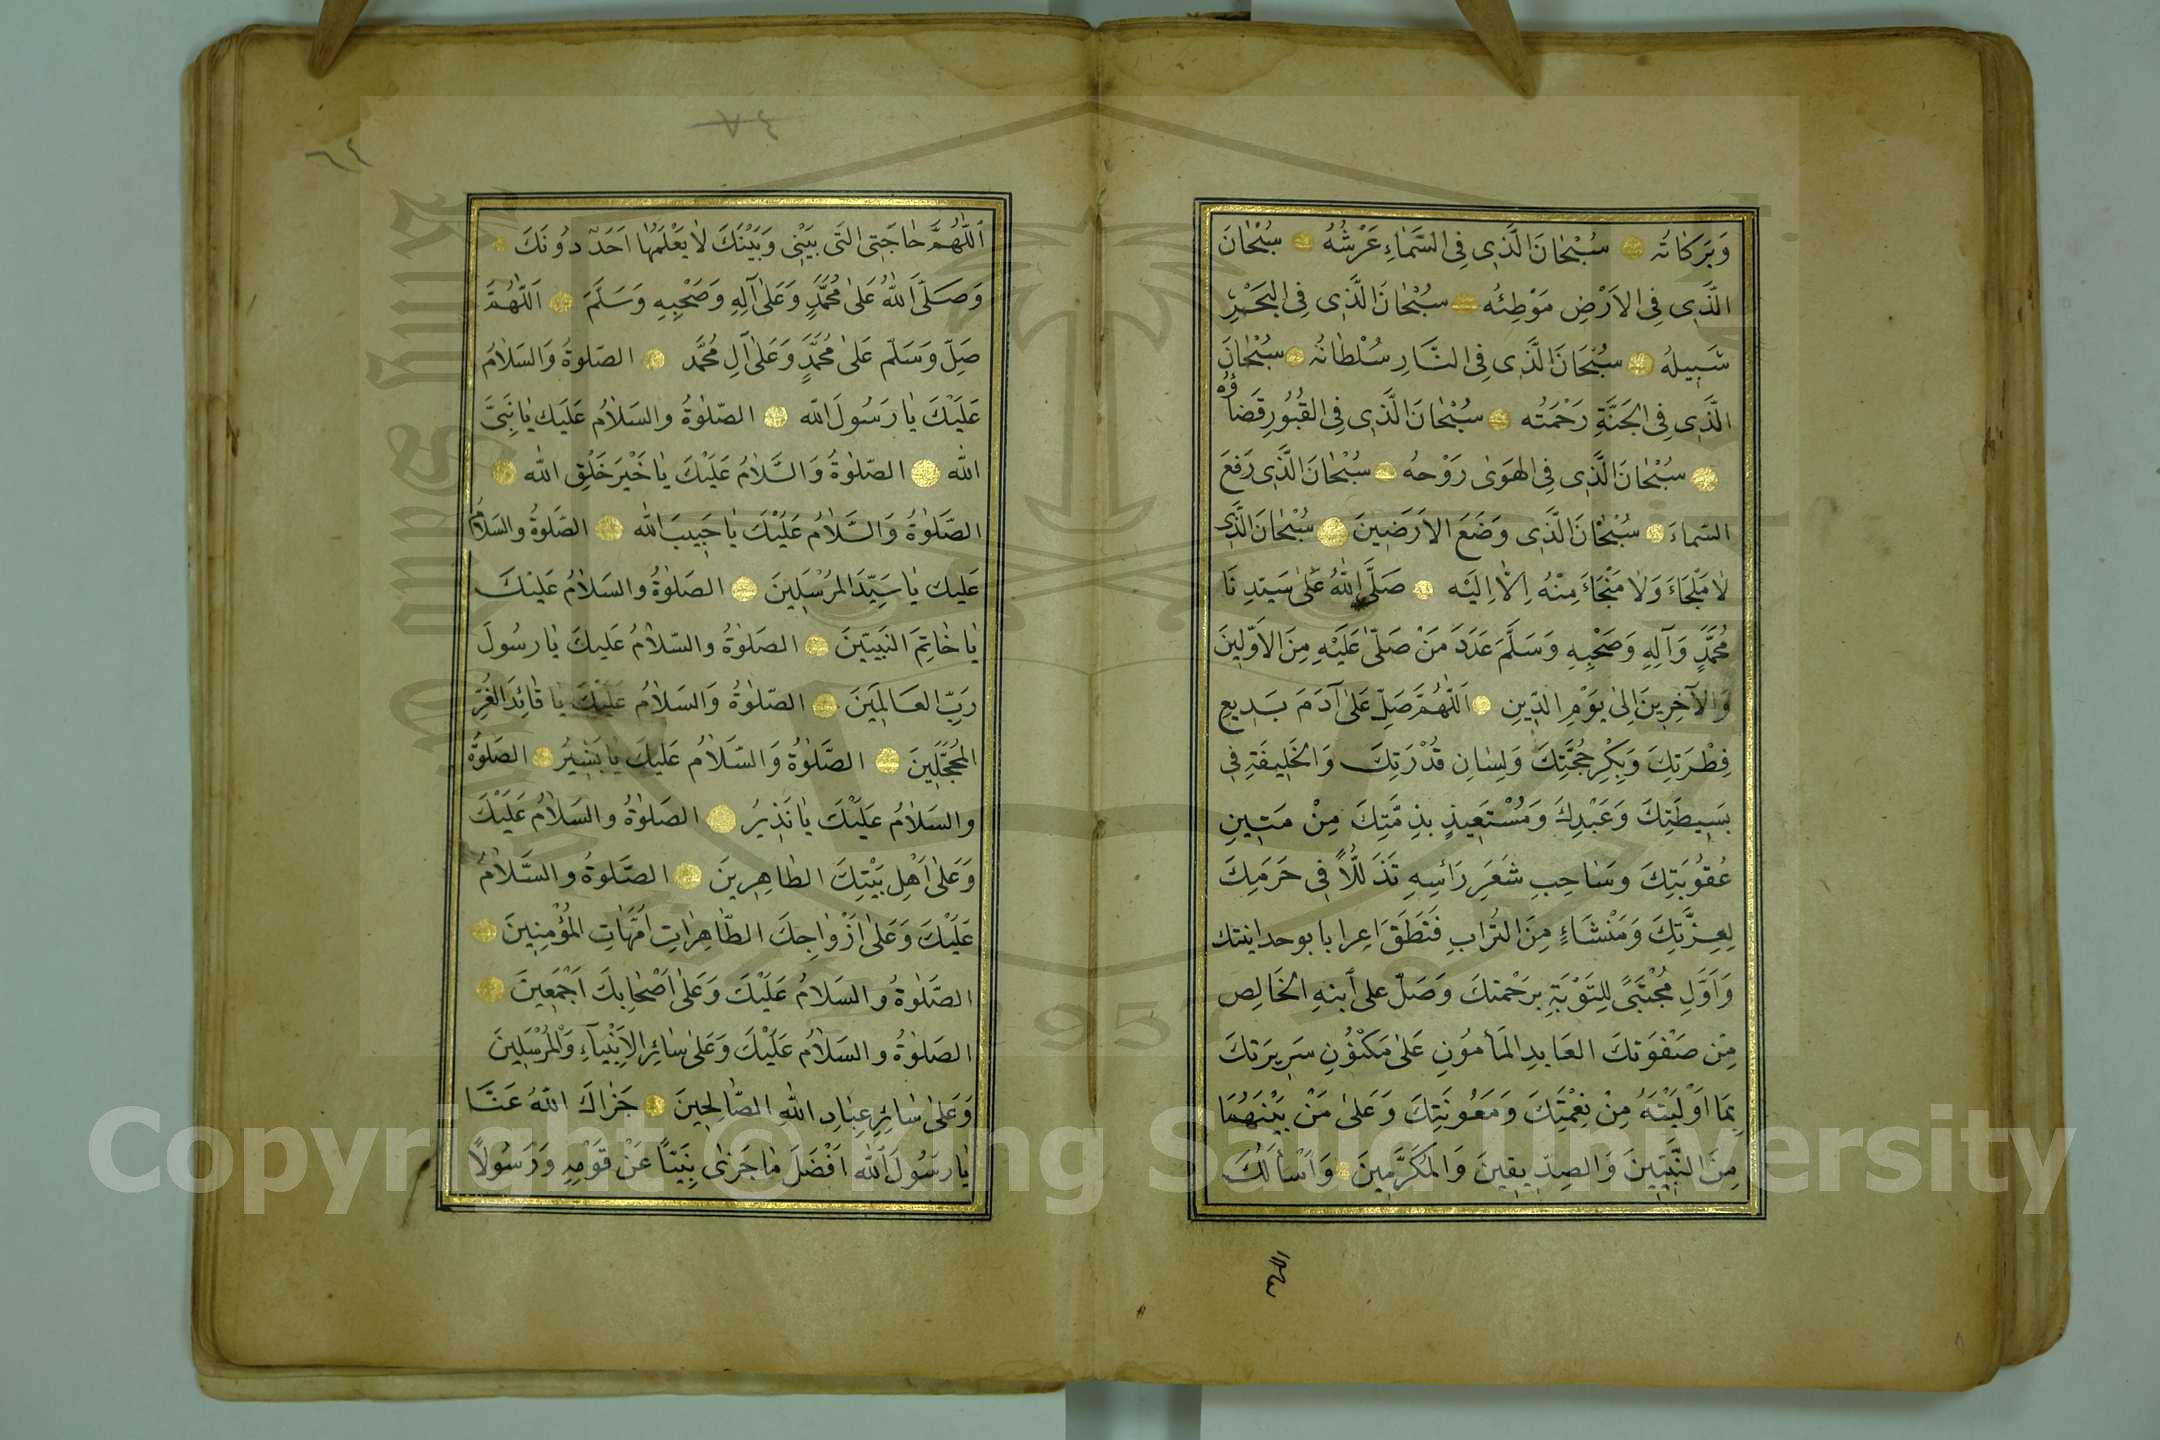 وَبَرَكَاتُه سُبْحَانَ الَّذِى فِى السَّمَاءِ عَرْشُهُ سُبْحَانَ
الَّذِى فِى الاَرْضِ مَوْطِئُه سُبْحَانَ الَّذِى فِى الْبَحْرِ
سَبِيلُهُ سُبْحَانَ الَّذِى فِى النَّارِ سُلْطَانُه سُبْحَانَ
الَّذِى فِى الْجَنَّةِ رَحْمَتُه سُبْحَانَ الَّذِى فِى القُبُورِ قَضَاؤُهُ
سُبْحَانَ الَّذِى فِى الهَوَى رَوْحُهُ سُبْحَانَ الَّذِى رَفَعَ
السَّمَاءَ سُبْحَانَ الَّذِى وَضَعَ الاَرَضِينَ سُبْحَانَ الَّذِى
لاَ مَلْجَاءَ وَلاَ مَنْجَاءَ مِنْهُ اِلاَّ اِلَيْه صَلَّى اللهُ عَلَى سَيِّدِنَا
مُحَمَّدٍ وَآلِهِ وَصَحْبِهِ وَسَلَّمَ عَدَدَ مَنْ صَلَّى عَلَيْهِ مِنَ الاَوَّلِينَ
وَالآخِرِينَ اِلىٰ يَوْمِ الدِّينِ اَللّٰهُمَّ صَلِّ عَلىٰ آدَمَ بَدِيعِ
فِطْرَتِكَ وَبِكْرِ حُجَّتِكَ وَلِسَانِ قُدْرَتِكَ وَالخَلِيفَةِ فِى
بَسِيطَتِكَ وَعَبْدِكَ وَمُسْتَعِيذٍ بِذِمَّتِكَ مِنْ مَتِينِ
عُقُوبَتِكَ وَسَاحِبِ شَعَرِ رَأسِهِ تَذَلُّلاً فِى حَرَمِكَ
لِعِزَّتِكَ وَمَنْشَاءٍ مِنَ التُّرَابِ فَنَطَقَ اِعرابا بوحدانيتك
وَاَوَّلِ مُجْتَبًى لِلتَوْبَةِ بِرَحْمتكَ وَصَلّ على اَبنهِ الخَالِصِ
مِنْ صَفْوَتِكَ العَابِدِ المَأمُونِ عَلىٰ مَكْنُونِ سَرِيرَتِكَ
بِمَا اَوْلَيْتَهُ مِنْ نِعْمَتِكَ وَمَعُونَتِكَ وَعَلىٰ مَنْ بَيْنَهُمَا
مِنَ النَّبِيِّينَ وَالصِدِّيقِينَ وَالمُكَرَّمِينَ وَاَسْأَلُكَ
٦٤
اَللّٰهُمَّ حَاجَتِى الَّتِى بَيْنِى وَبَيْنَكَ لاَ يَعْلَمُهَا اَحَدٌ دُونَكَ
وَصَلَّى اللهُ عَلىٰ مُحَمَّدٍ وَعَلىٰ آلِهِ وَصَحْبِهِ وَسَلَّمَ اَللّٰهُمَّ
صَلِّ وَسَلّم عَلىٰ مُحَمَّدٍ وَعَلىٰ آلِ مُحَمَّد الصّلوةُ وَالسَلاَمُ
عَلَيْكَ يَا رَسُولَ اللّه الصّلوةُ والسَلاَمُ عَلَيك يَا نَبِىَّ
الله الصّلوةُ وَالسَّلاَمُ عَلَيْكَ يَا خَيْرَ خَلْقِ الله
الصَّلوةُ وَالسَّلاَمُ عَلَيْكَ يَا حَبِيبَ الله الصَّلوةُ والسَلاَمُ
عَليك يَا سَيِّدَ المرْسَلِينَ الصَلوةُ والسَلاَمُ عَلَيْكَ
يَا خَاتِمَ النَبِيّينَ الصَلوةُ والسّلاَمُ عَلَيكَ يَا رسُولَ
رَبِّ العَالَمِينَ الصّلوةُ وَالسَلاَمُ عَلَيْكَ يَا قَائِدَ الغُرِّ
المُحَجَّلِينَ الصَّلوةُ وَالسّلاَمُ عَلَيكَ يَا بَشِيرُ الصَلوةُ
والسَلاَمُ عَلَيْكَ يَا نَذِيرُ الصَلوةُ والسَلاَمُ عَلَيْكَ
وَعَلىٰ اَهْلِ بَيْتِكَ الطَاهِرِينَ الصَّلوةُ والسَّلاَمُ
عَلَيْكَ وَعَلىٰ اَزْوَاجِكَ الطَّاهِرَاتِ اُمَّهَاتِ المُؤْمِنِينَ
الصَّلوةُ والسَلاَمُ عَلَيْكَ وَعَلىٰ اَصْحَابِكَ اَجْمَعِينَ
الصَلوةُ والسَلاَمُ عَلَيْكَ وَعَلىٰ سَائِرِ الاَنْبِيآءِ وَالْمُرْسَلِينَ
وَعَلىٰ سَائِرِ عِبَادِ اللهِ الصَّالِحِينَ جَزَاكَ اللّهُ عَنَّا
يَا رسُولَ اَللهِ اَفْضَلَ مَا جَزىٰ نَبِيّاً عَنْ قَوْمِهِ وَرَسُولاً
Copyright © King Saud University